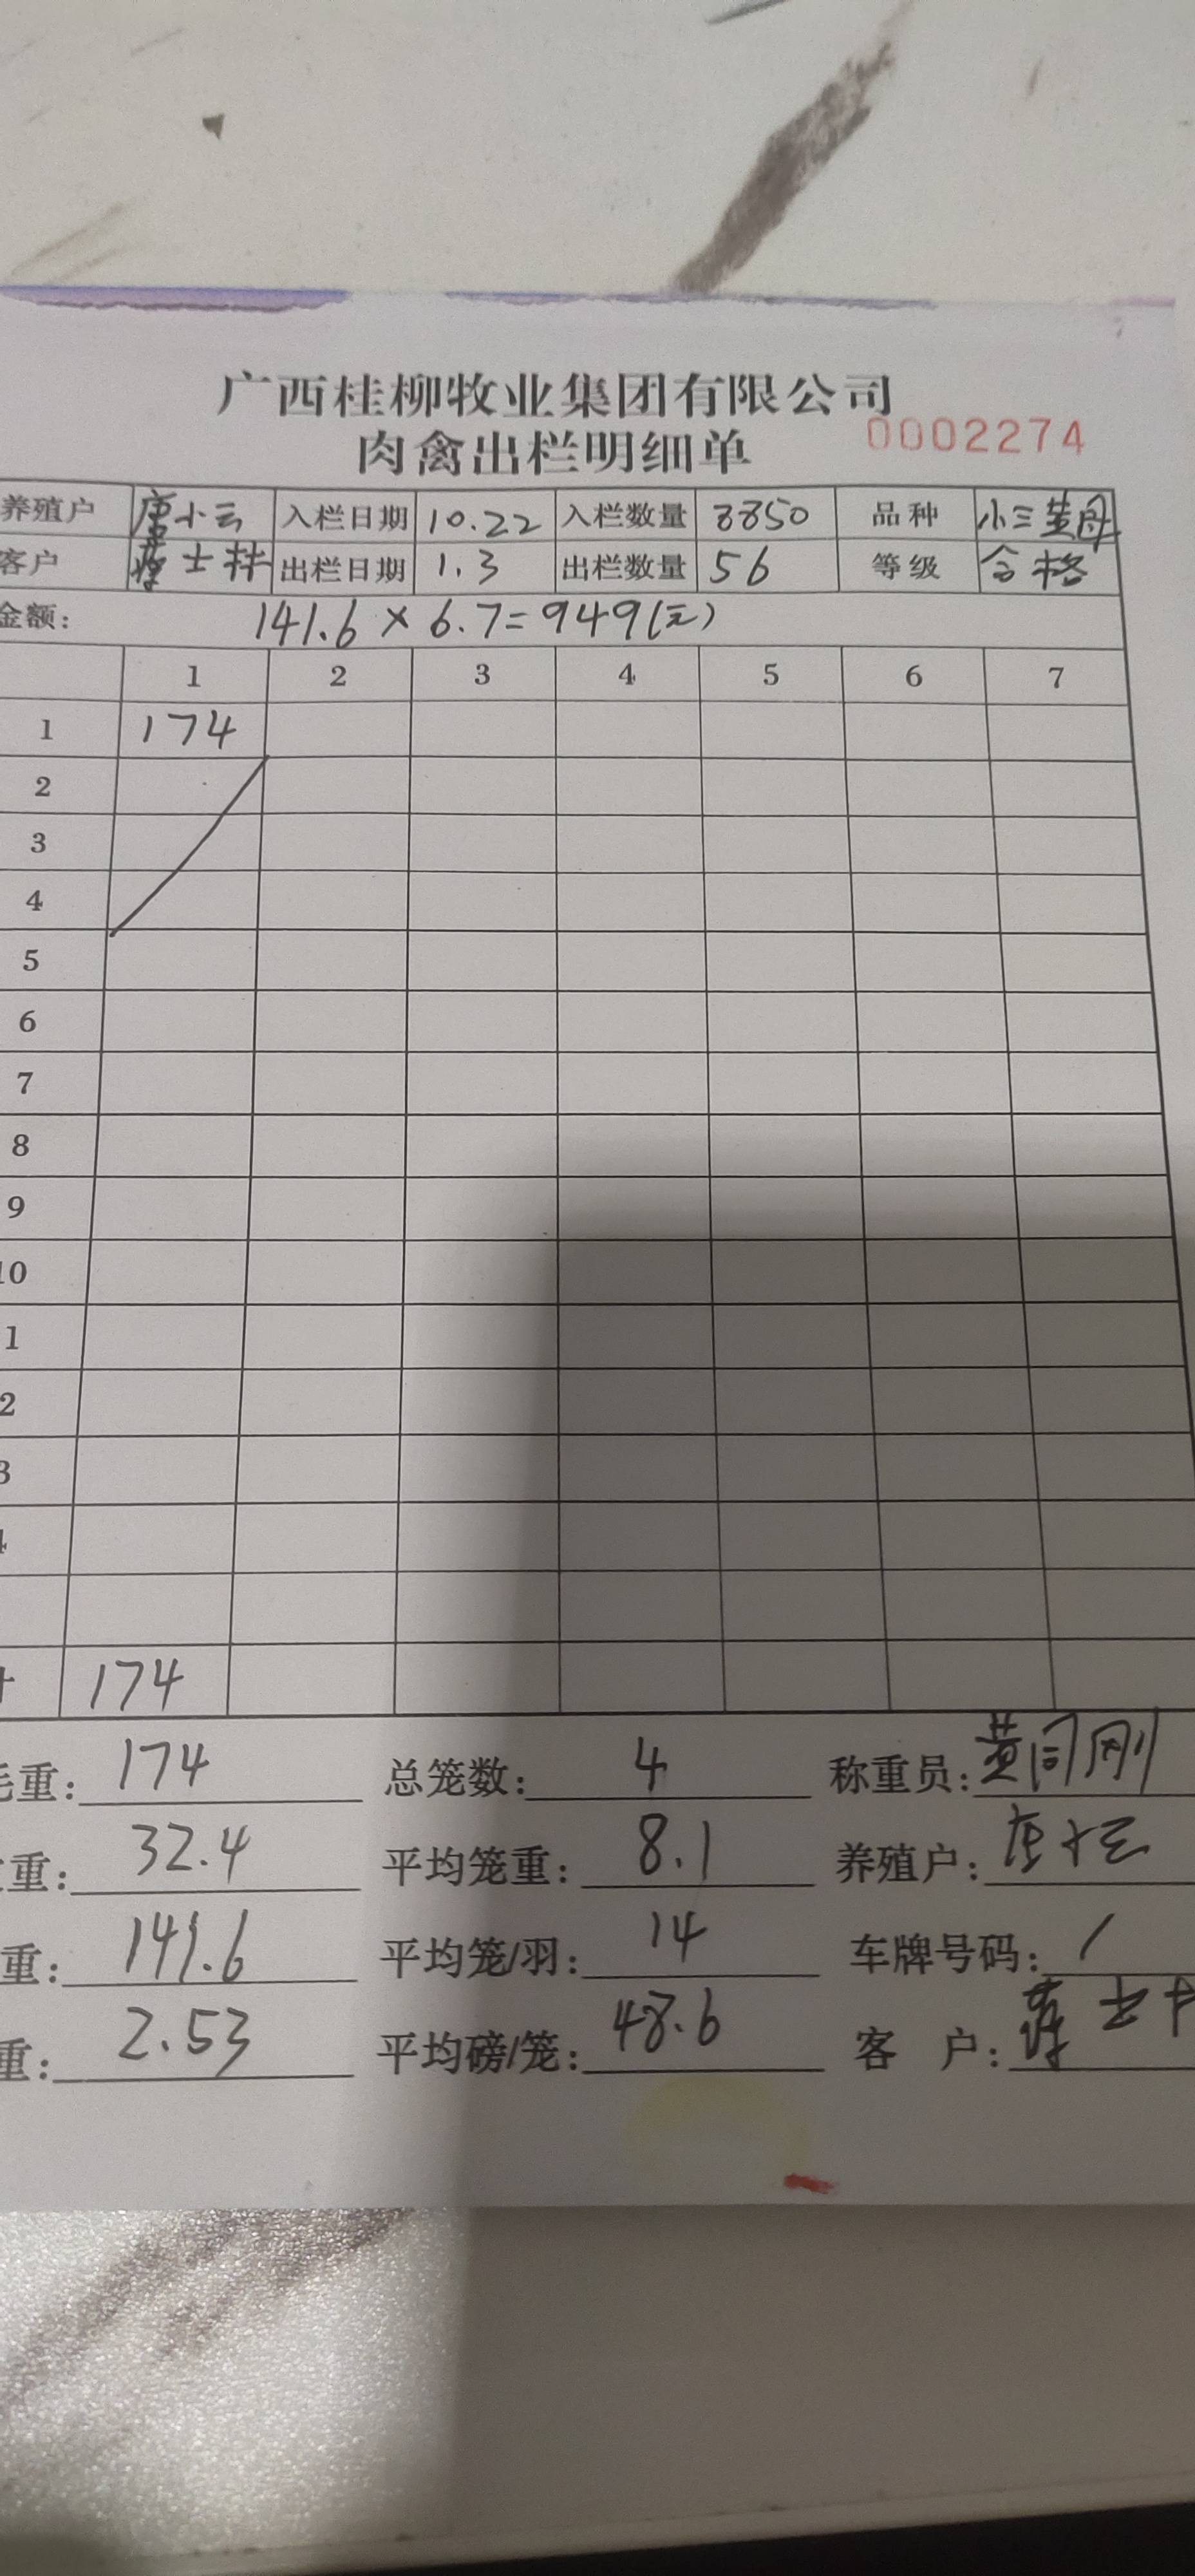 广西桂柳牧业集团有限公司
肉禽出栏明细单 0002274
养殖户 唐小云 入栏日期 10.22 入栏数量 8850 品种 小三黄母
客户 士 出栏日期 1.3 出栏数量 56 等级 合格
金额: 141.6 × 6.7=949(元)
1 2 3 4 5 6 7
1 174
2
3
4
5
6
7
8
9
10
1
2
3
4
计 174
毛重: 174 总笼数: 4 称重员: 黄同刚
重: 32.4 平均笼重: 8.1 养殖户: 唐小云
重: 141.6 平均笼/羽: 14 车牌号码: /
重: 2.53 平均磅/笼: 48.6 客 户: